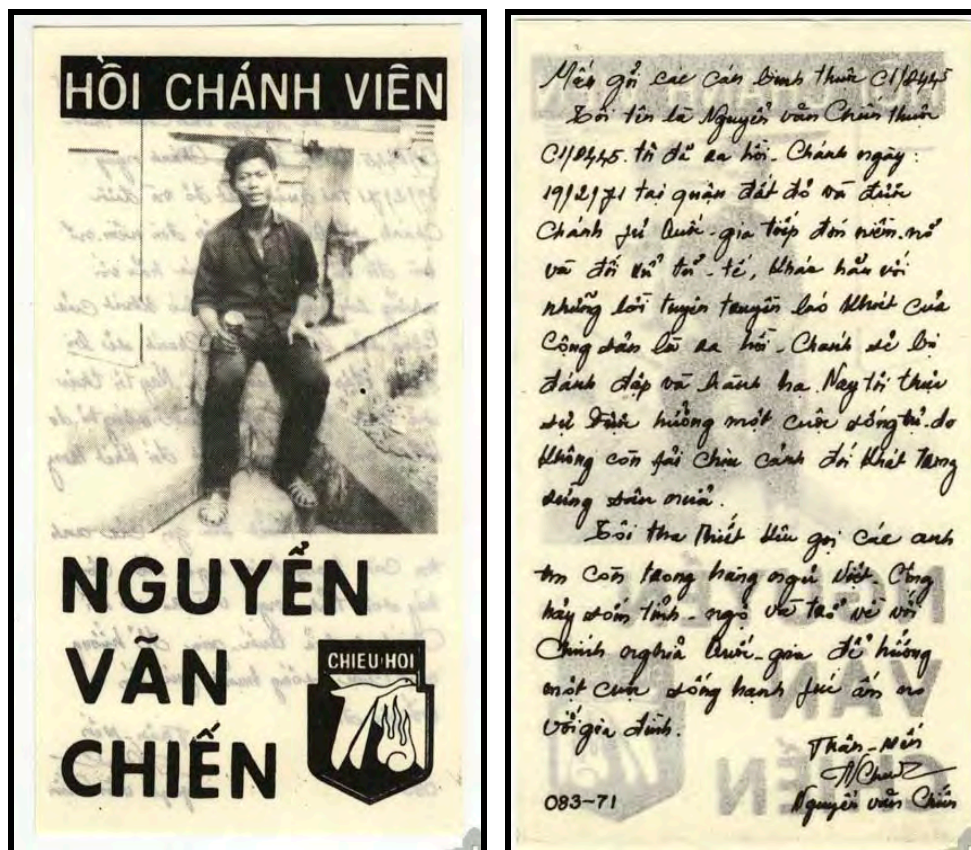 HỒI CHÁNH VIÊN
NGUYỂN
VĂN
CHIẾN
CHIEU HOI
Mến gởi các cán binh thuộc C1/D445
Tôi tên là Nguyễn văn Chiến thuộc
C1/D445. tôi đã ra hồi-Chánh ngày:
19/2/71 tại quận đất đỏ và được
Chánh fủ Quốc-gia tiếp đón niềm-nở
và đối xử tử-tế, khác hẳn với
những lời tuyên truyền láo khoét của
Cộng sản là ra hồi-Chánh sẽ bị
đánh đập và hành hạ. Nay tôi thực
sự được hưởng một cuộc sống tự-do
không còn fải chịu cảnh đói khát trong
rừng sâu nữa.
Tôi tha thiết kêu gọi các anh
em còn trong hàng ngủ Việt-Cộng
hảy sớm tỉnh-ngộ và trở về với
Chính nghỉa Quốc-gia để hưởng
một cuộc sống hạnh fúc ấm no
với gia đình.
Thân-Mến
Nguyễn văn Chiến
083-71